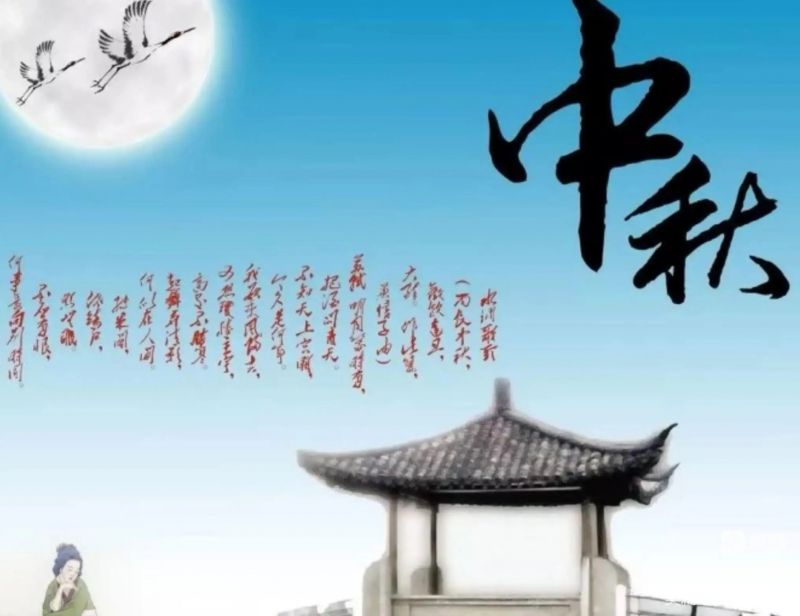 中秋
水调歌头
(丙辰中秋,
欢饮达旦,
大醉,作此篇,
兼怀子由)
苏轼 明月几时有,
把酒问青天。
不知天上宫阙,
今夕是何年。
我欲乘风归去,
又恐琼楼玉宇,
高处不胜寒。
起舞弄清影,
何似在人间。
转朱阁,
低绮户,
照无眠。
不应有恨,
何事长向别时圆。